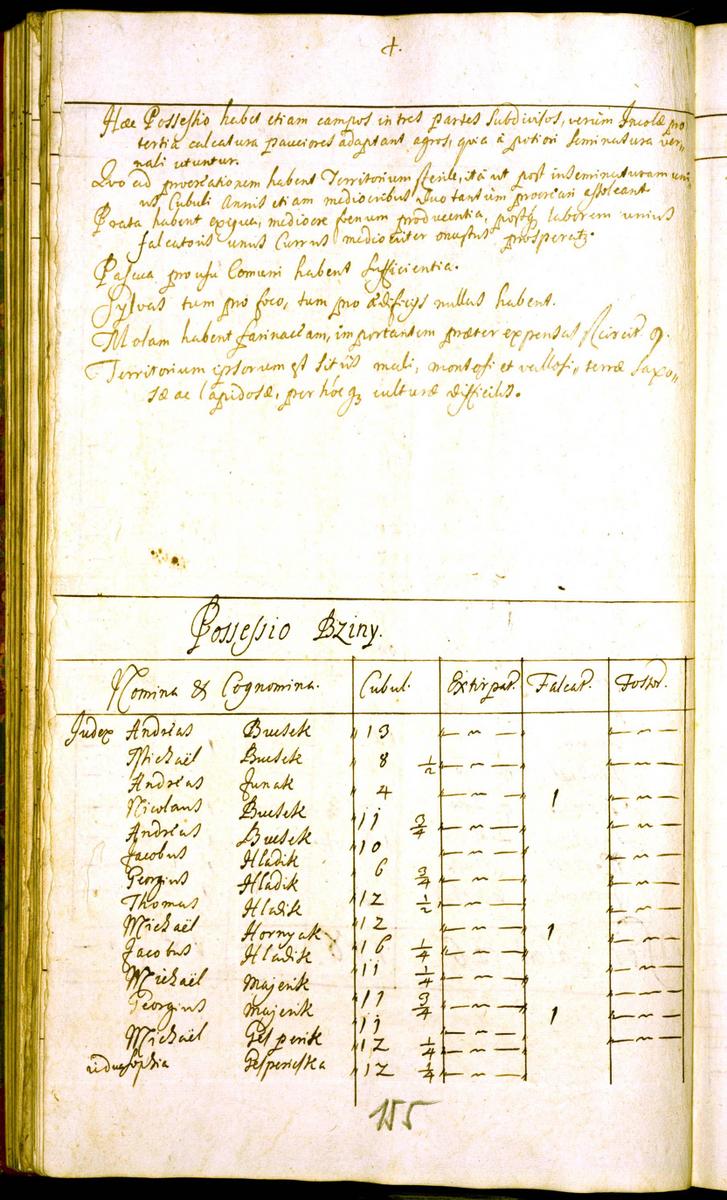 4.
Hæc Possessio habet etiam campos in tres partes Subdivisos, verùm Incolæ pro
tertia calcatura pauciores adaptant agros, quia à potiori seminatura ver„
nali utuntur.
Quo ad procreationem habent Territorium sterile, ità ut post inseminaturam uni„
us Cubuli Annis etiam mediocribus Duo tantùm procreari assoleant
Prata habent exigua, mediocre foenum producentia, postq laborem unius
falcatoris unus Currus mediocriter onustus prosperatq.
Pascua pro usu Comuni habent sufficientia.
Sylvas tum pro foco, tum pro ædificijs nullas habent.
Molam habent farinaceam, importantem præter expensas flcircit 9.
Territorium ipsorum est sitûs mali, montosi et vallosi„ terræ saxo„
sæ ac lapidosæ, per hócq culturæ difficilis.
Possessio Bziny.
Nomina & Cognomina. Cubul. Extirpat. Falcat. Fossor.
Judex Andreas Bucsek „ 13 „— ~ —„ „— ~ —
Michaël Bucsek „ 8 ½ „— ~ —„ „— ~ —
Andreas Junak „ 4 1
Nicolaus Bucsek „ 11 ¾ „— ~ —„ „— ~ —
Andreas Bucsek „ 10 „— ~ —„ „— ~ —
Jacobus Hladik „ 6 ¾ „— ~ —„ „— ~ —
Georgius Hladik „ 12 ½ „— ~ —„ „— ~ —
Thomas Hladik „ 12 1
Michaël Hornyak „ 16 ¼ „— ~ —„ „— ~ —
Jacobus Hladik „ 11 ¼ „— ~ —„ „— ~ —
Michaël Majerik „ 11 ¾ „— ~ —„ „— ~ —
Georgius Majerik „ 11 1
Michaël Gesperik „ 12 ¼ „— ~ —„ „— ~ —
Sophia Gespericska „ 12 ¼ „— ~ —„
155